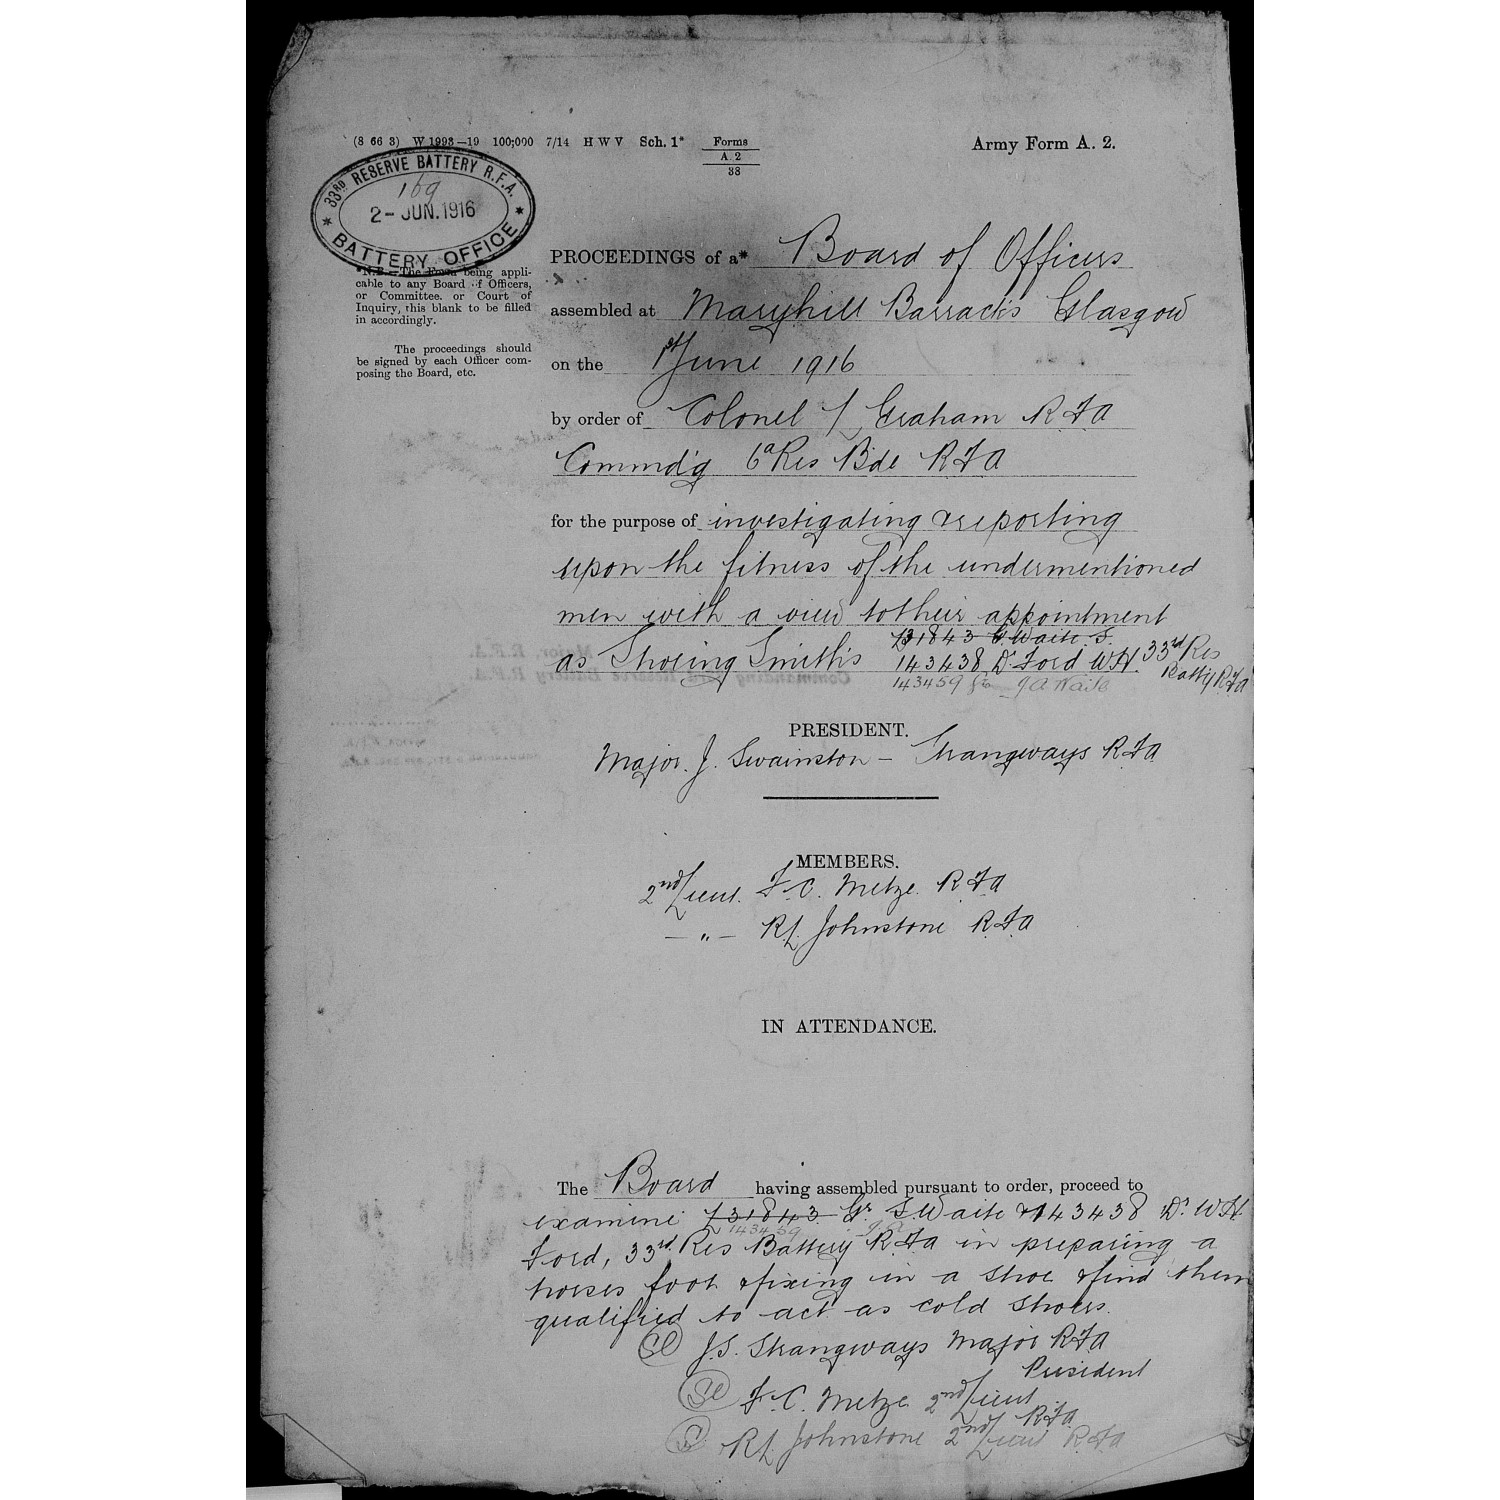 (8 66 3) W 1993—19 100;000 7/14 H W V Sch. 1* Forms A. 2 38
Army Form A. 2.
33RD RESERVE BATTERY R.F.A.
169
2- JUN. 1916
BATTERY OFFICE
*N.B.—The Form being appli-
cable to any Board of Officers,
or Committee, or Court of
Inquiry, this blank to be filled
in accordingly.
The proceedings should
be signed by each Officer com-
posing the Board, etc.
PROCEEDINGS of a* Board of Officers
assembled at Maryhill Barracks Glasgow
on the 1st June 1916
by order of Colonel L Graham R.F.A
Commdg 6a Res Bde R.F.A
for the purpose of investigating & reporting
upon the fitness of the undermentioned
men with a view to their appointment
as Shoeing Smiths L31843 Gr Waite S.
143438 Dr Ford W.H. 33rd Res
Batty R.F.A
143459 Gr J A Waite
PRESIDENT.
Major. J. Swainston - Strangways R.F.A
MEMBERS.
2nd Lieut. F. C. Metze R.F.A
— „ — R L Johnstone R.F.A
IN ATTENDANCE.
The Board having assembled pursuant to order, proceed to
examine L31843 Gr S. Waite & 143438 Dr W H
143459 J A
Ford, 33rd Res Battery R.F.A in preparing a
horses foot & fixing in a shoe & find them
qualified to act as cold shoers.
Sd J. S. Strangways Major R.F.A
President
Sd F. C. Metze 2nd Lieut
R.F.A
Sd R L Johnstone 2nd Lieut R.F.A